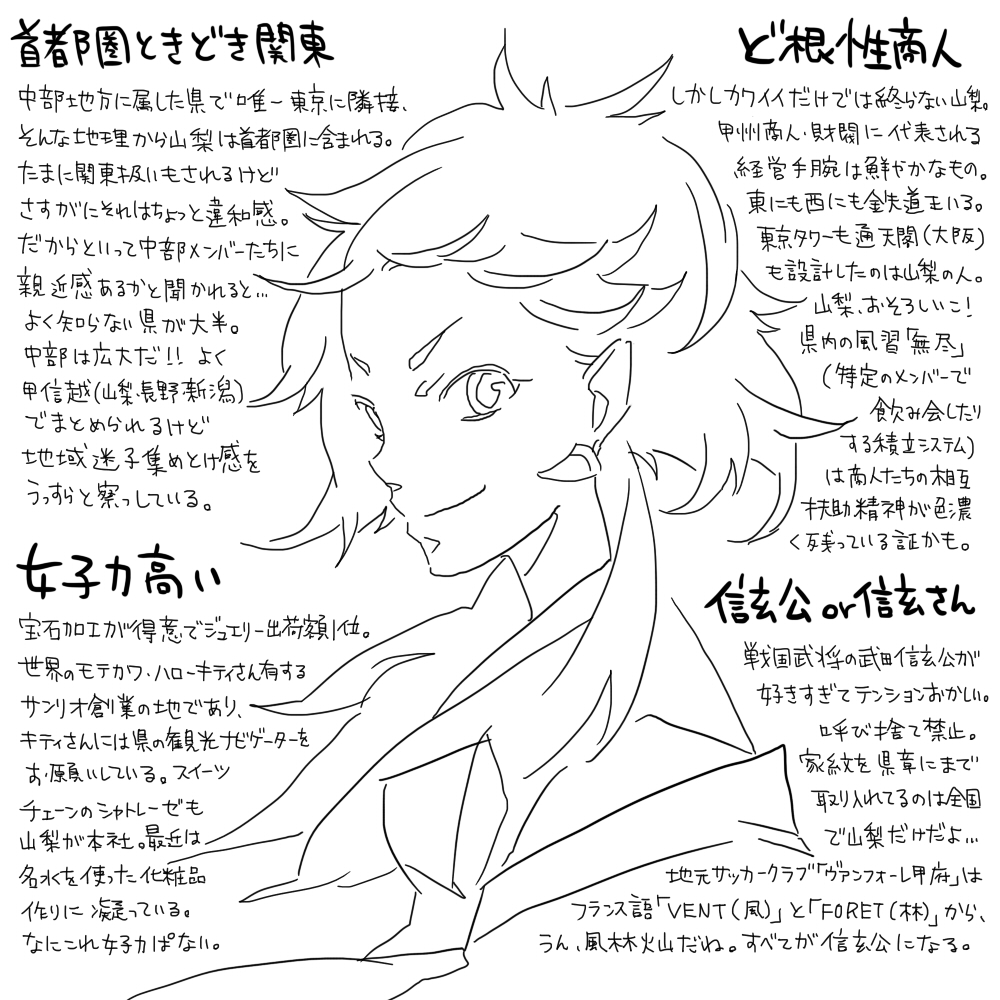 首都圏ときどき関東
中部地方に属した県で唯一東京に隣接、
そんな地理から山梨は首都圏に含まれる。
たまに関東扱いもされるけど
さすがにそれはちょっと違和感。
だからといって中部メンバーたちに
親近感あるかと聞かれると…
よく知らない県が大半。
中部は広大だ!! よく
甲信越(山梨・長野・新潟)
でまとめられるけど
地域迷子集めとけ感を
うっすらと察っしている。
女子力高い
宝石加工が得意でジュエリー出荷額1位。
世界のモテカワ・ハローキティさん有する
サンリオ創業の地であり、
キティさんには県の観光ナビゲーターを
お願いしている。スイーツ
チェーンのシャトレーゼも
山梨が本社。最近は
名水を使った化粧品
作りに凝っている。
なにこれ女子力ぱない。
ど根性商人
しかしカワイイだけでは終らない山梨。
甲州商人・財閥に代表される
経営手腕は鮮やかなもの。
東にも西にも鉄道王いる。
東京タワーも通天閣(大阪)
も設計したのは山梨の人。
山梨、おそろしいこ!
県内の風習「無尽」
(特定のメンバーで
飲み会したり
する積立システム)
は商人たちの相互
扶助精神が色濃
く残っている証かも。
信玄公or信玄さん
戦国武将の武田信玄公が
好きすぎてテンションおかしい。
呼び捨て禁止。
家紋を県章にまで
取り入れてるのは全国
で山梨だけだよ…
地元サッカークラブ「ヴァンフォーレ甲府」は
フランス語「VENT(風)」と「FORET(林)」から、
うん、風林火山だね。すべてが信玄公になる。